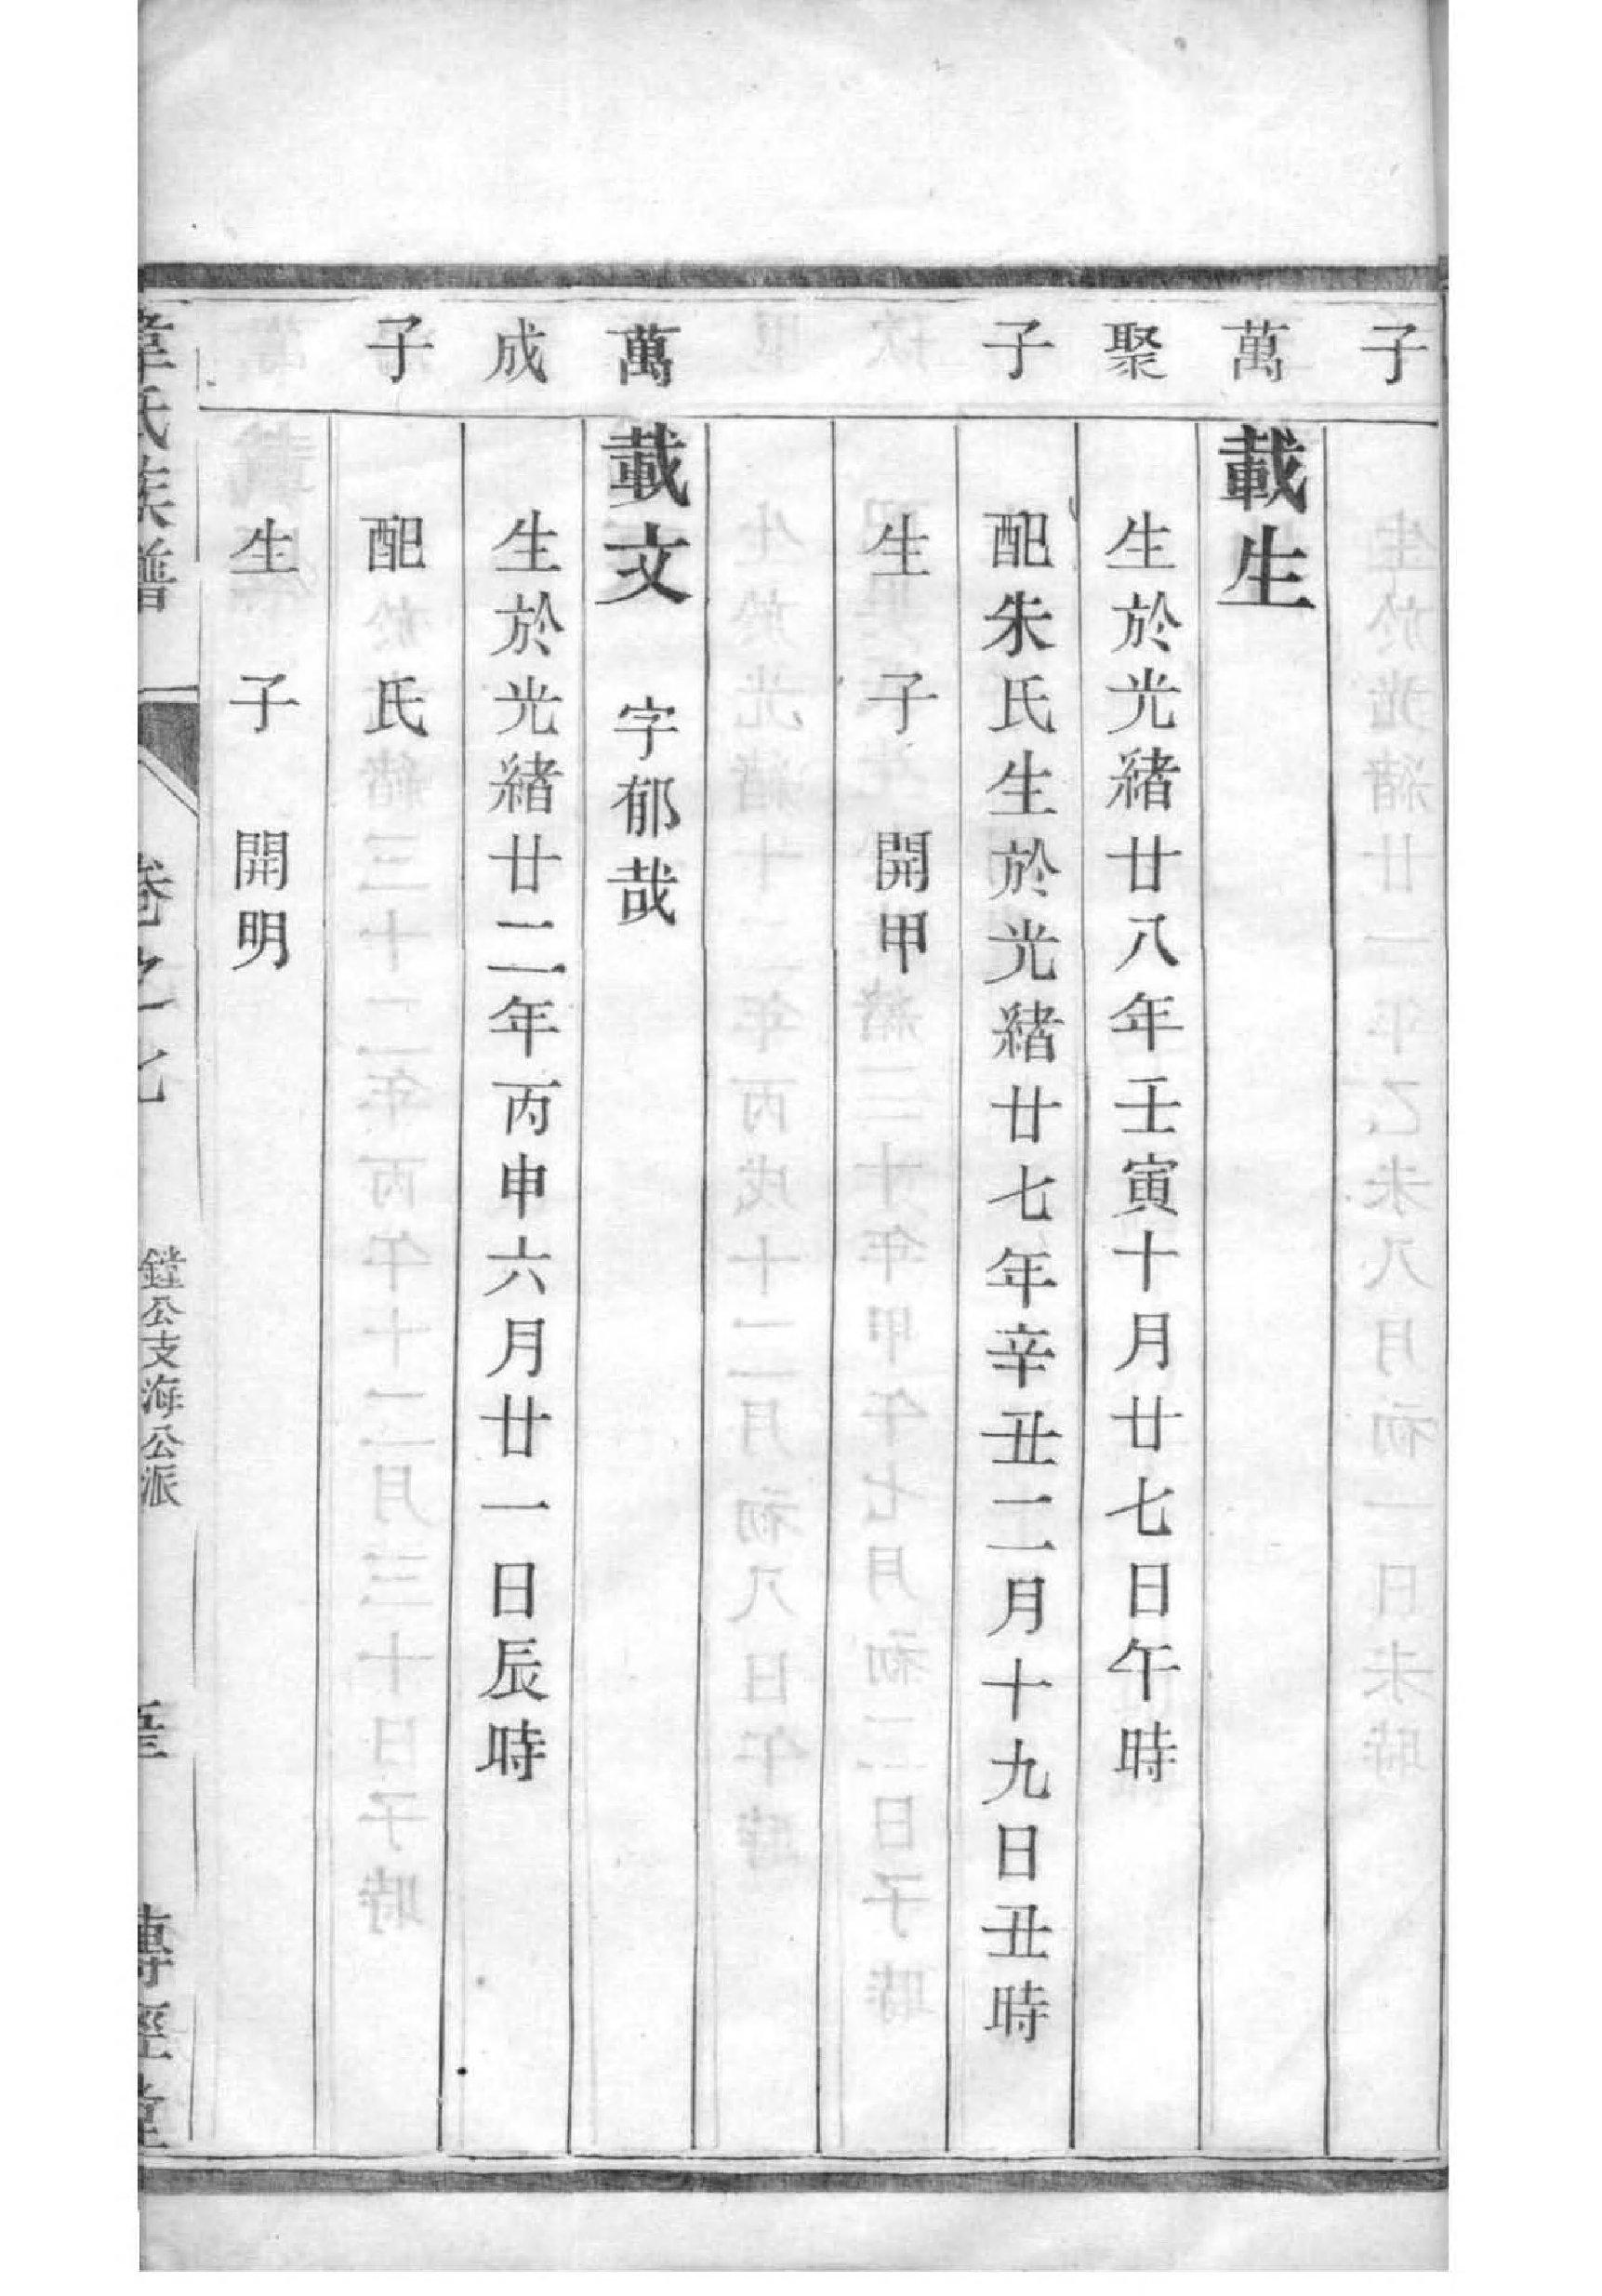 子
萬
聚
子
萬
成
子
載生
生於光緒廿八年壬寅十月廿七日午時
配朱氏生於光緒廿七年辛丑二月十九日丑時
生　子　開甲
載文　字郁哉
生於光緒廿二年丙申六月廿一日辰時
配　氏
生　子　開明
氏族譜
卷之七
鏜公支海公派
傳經堂